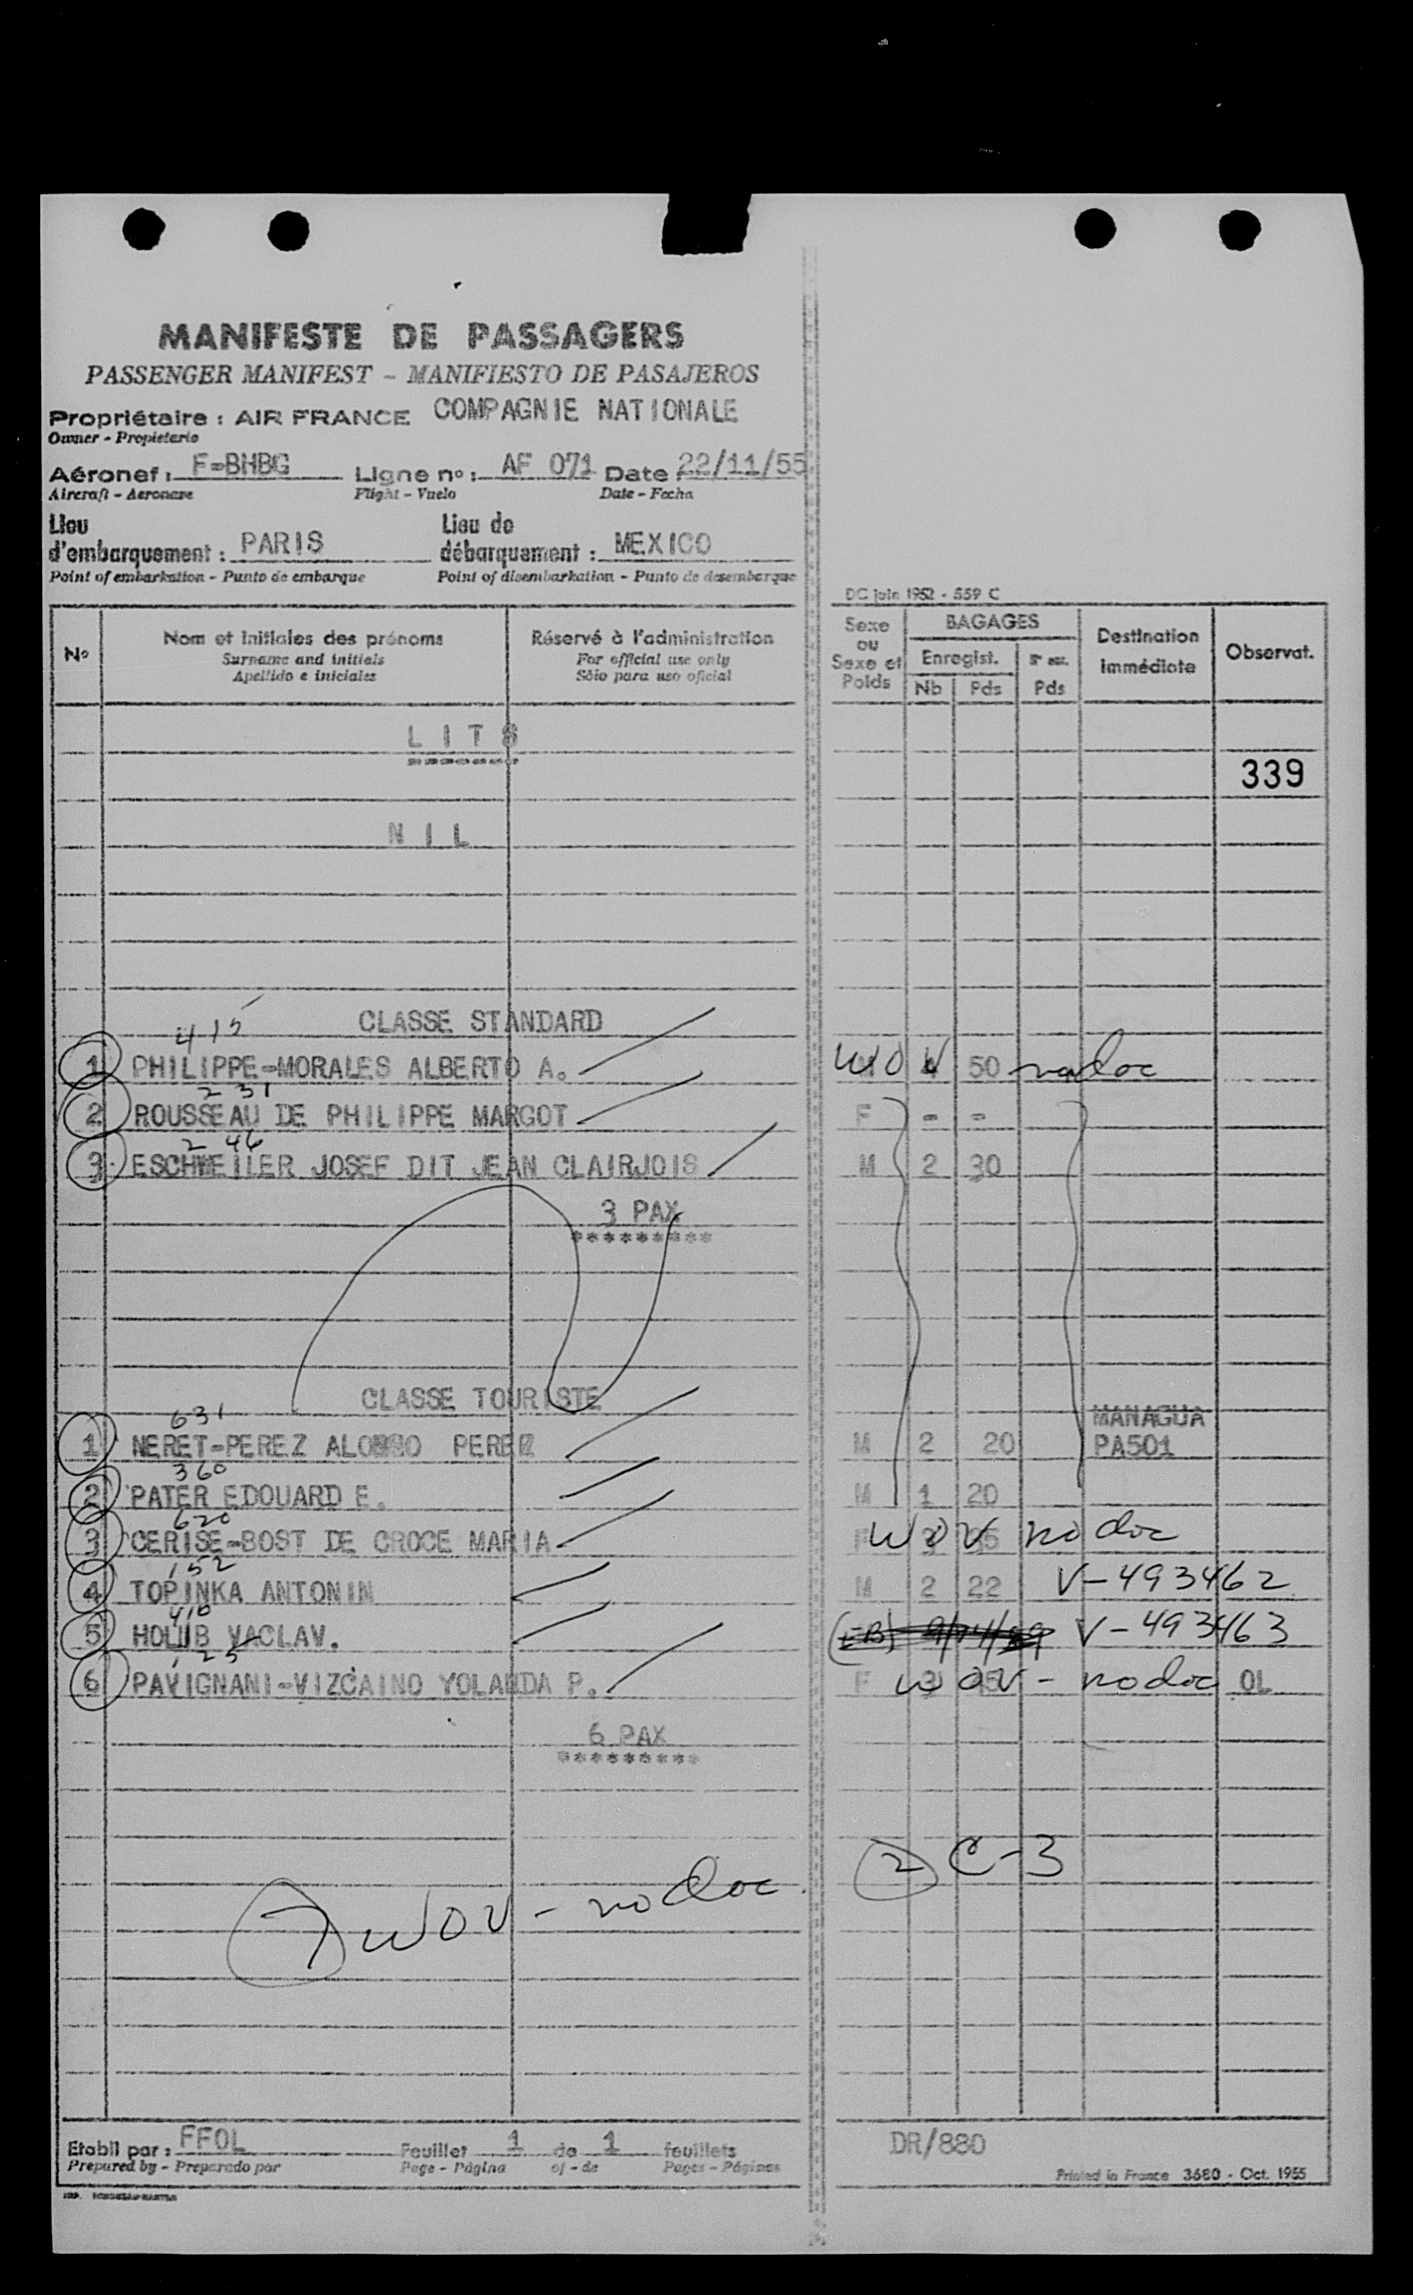 MANIFESTE DE PASSAGERS
PASSENGER MANIFEST - MANIFIESTO DE PASAJEROS
Propriétaire : AIR FRANCE COMPAGNIE NATIONALE
Owner - Propietario
Aéronef : F-BHBG Ligne nº : AF 071 Date 22/11/55
Aircraft - Aeronave Flight - Vuelo Date - Fecha
Lieu d'embarquement : PARIS Lieu de débarquement : MEXICO
Point of embarkation - Punto de embarque Point of disembarkation - Punto de desembarque
DC juin 1952 - 559 C
Nº Nom et initiales des prénoms Réservé à l'administration Sexe ou Sexe et Poids BAGAGES Destination immédiate Observat.
Surname and initials For official use only Enregist.
Apellido e iniciales Sólo para uso oficial Nb Pds Pds
LITS
339
NIL
415 CLASSE STANDARD
1 PHILIPPE-MORALES ALBERTO A. WOV 50 no doc
2 31
2 ROUSSEAU DE PHILIPPE MARGOT F - -
2 46
3 ESCHWEILER JOSEF DIT JEAN CLAIRJOIS M 2 30
3 PAX
*********
CLASSE TOURISTE
631 MANAGUA
1 NERET-PEREZ ALONSO PEREZ M 2 20 PA501
360
2 PATER EDOUARD E. M 1 20
620
3 CERISE-BOST DE CROCE MARIA F WOV no doc
152
4 TOPINKA ANTONIN M 2 22 V-493462
410
5 HOLUB VACLAV. V-493463
125
6 PAVIGNANI-VIZCAINO YOLANDA P. F WOV - no doc OL
6 PAX
*********
2 C-3
7 WOV - no doc
Etabli par : FFOL Feuillet 1 de 1 feuillets DR/880
Prepared by - Preparado por Page - Página of - de Pages - Páginas
Printed in France 3680 - Oct. 1955